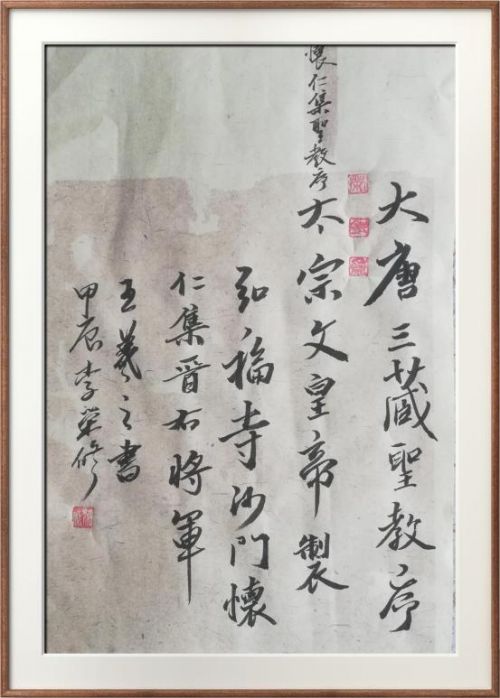 大唐三藏聖教序
懷仁集聖教序
太宗文皇帝製
弘福寺沙門懷
仁集晉右將軍
王羲之書
甲辰李榮修